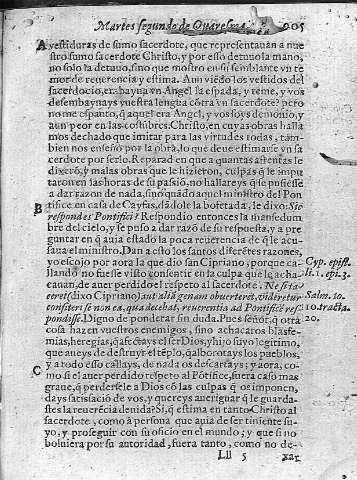 Martes segundo de Quaresma. 905
A vestiduras de sumo sacerdote, que representauan a nue
stro sumo sacerdote Christo, y por esso detuuo la mano,
no solo la detuuo, sino que mostro en su semblante vn te
mor de reuerencia y estima. Aun viēdo los vestidos del
sacerdocio, exbayna vn Angel la espada, y teme, y vos
desembaynays vuestra lengua cōtra vn sacerdote? pero
no me espanto, q̃ aquel era Angel, y vos soys demonio, y
aun peor en las costūbres. Christo, en cuyas obras halla
mos dechado que imitar para las virtudes todas, tam-
bien nos enseño por la obra, lo que deue estimarse vn sa
cerdote por serlo. Reparad en que a quantas afrentas le
dixerō, y malas obras que le hizieron, culpas q̃ le impu
taron en las horas de su passiō, no hallareys que pusiesse
a dar razon de nada, sino quādo aquel ministro del Pon
tifice en casa de Cayfas, dādole la bofetada, le dixo: Sic
B respondes Pontifici? Respondio entonces la mansedum
bre del cielo, y se puso a dar razō de su respuesta, y a pre
guntar en q̃ auia estado la poca reuerencia de q̃ le acu-
saua el ministro. Dan a esto los santos diferētes razones,
yo escojo por aora la que dio san Cipriano; porque ca-
llando no fuesse visto consentir en la culpa que le acha-
Cyp. epist.
li. 1. epi. 3.
cauan, de auer perdido el respeto al sacerdote. Ne si ta-
ceret (dixo Cipriano) aut aliā genam obuerteret, videretur
Salm. 10.
consiteri se non ea, qua decebat, reuerentia ad Pontificē res-
10. tracta.
pondisse. Digno de pōderar sin duda. Pues señor, q̃ otra
20.
cosa hazen vuestros enemigos, sino achacaros blasfe-
mias, heregias, q̃ afectays el ser Dios, y hijo suyo legitimo,
que aueys de destruyr el tēplo, q̃ alborotays los pueblos,
y a todo esso callays, de nada os descartays; y aora, co-
C mo si el auer perdido respeto al Pōtifice, fuera caso mas
graue, q̃ perdersele a Dios cō las culpas q̃ os imponen,
days satisfaciō de vos, y quereys aueriguar q̃ le guarda-
stes la reuerēcia deuida? Si, q̃ estima en tanto Christo al
sacerdote, como a persona que auia de ser tiniente su-
yo, y proseguir con su oficio en el mundo; y que si no
boluiera por su autoridad, fuera tanto, como no de-
Lll 5 xar